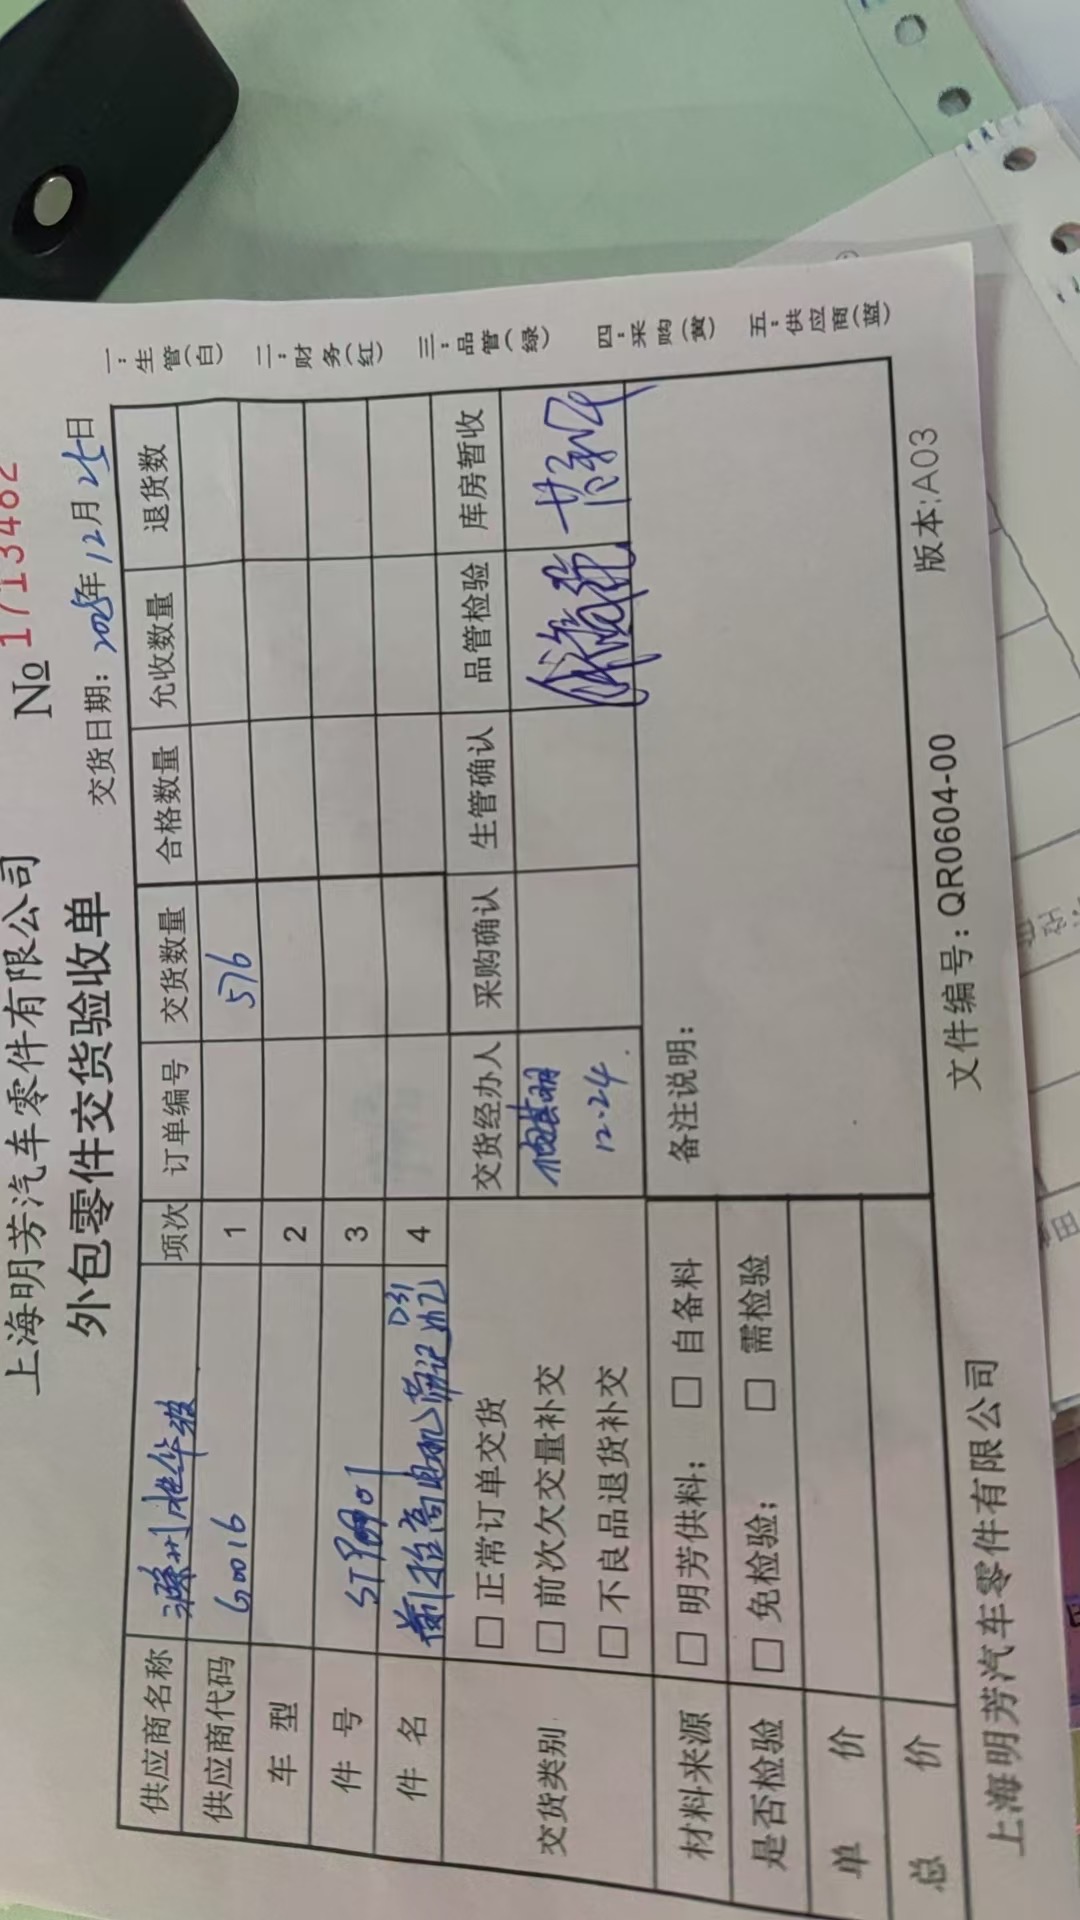 上海明芳汽车零件有限公司
外包零件交货验收单
№ 1713482
交货日期: 2025年12月25日
供应商名称
项次 订单编号 交货数量 合格数量 允收数量 退货数量
供应商代码 G0016 1 576
车型 2
件号 3
件名 D31 4
交货类别
□ 正常订单交货
□ 前次欠交量补交
□ 不良品退货补交
交货经办人 采购确认 生管确认 品管检验 库房暂收
12.24
材料来源 □ 明芳供料; □ 自备料
是否检验 □ 免检验; □ 需检验
单价
总价
备注说明:
一:生管(白)
二:财务(红)
三:品管(绿)
四:采购(黄)
五:供应商(蓝)
上海明芳汽车零件有限公司 文件编号:QR0604-00 版本:A03